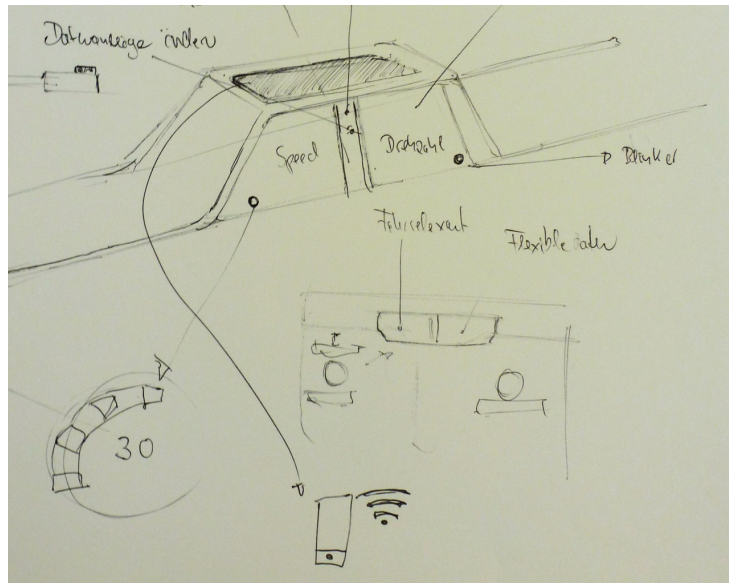 Datenanzeige
Speed
Drehzahl
Blinker
Fahrrelevant
Flexible Daten
30